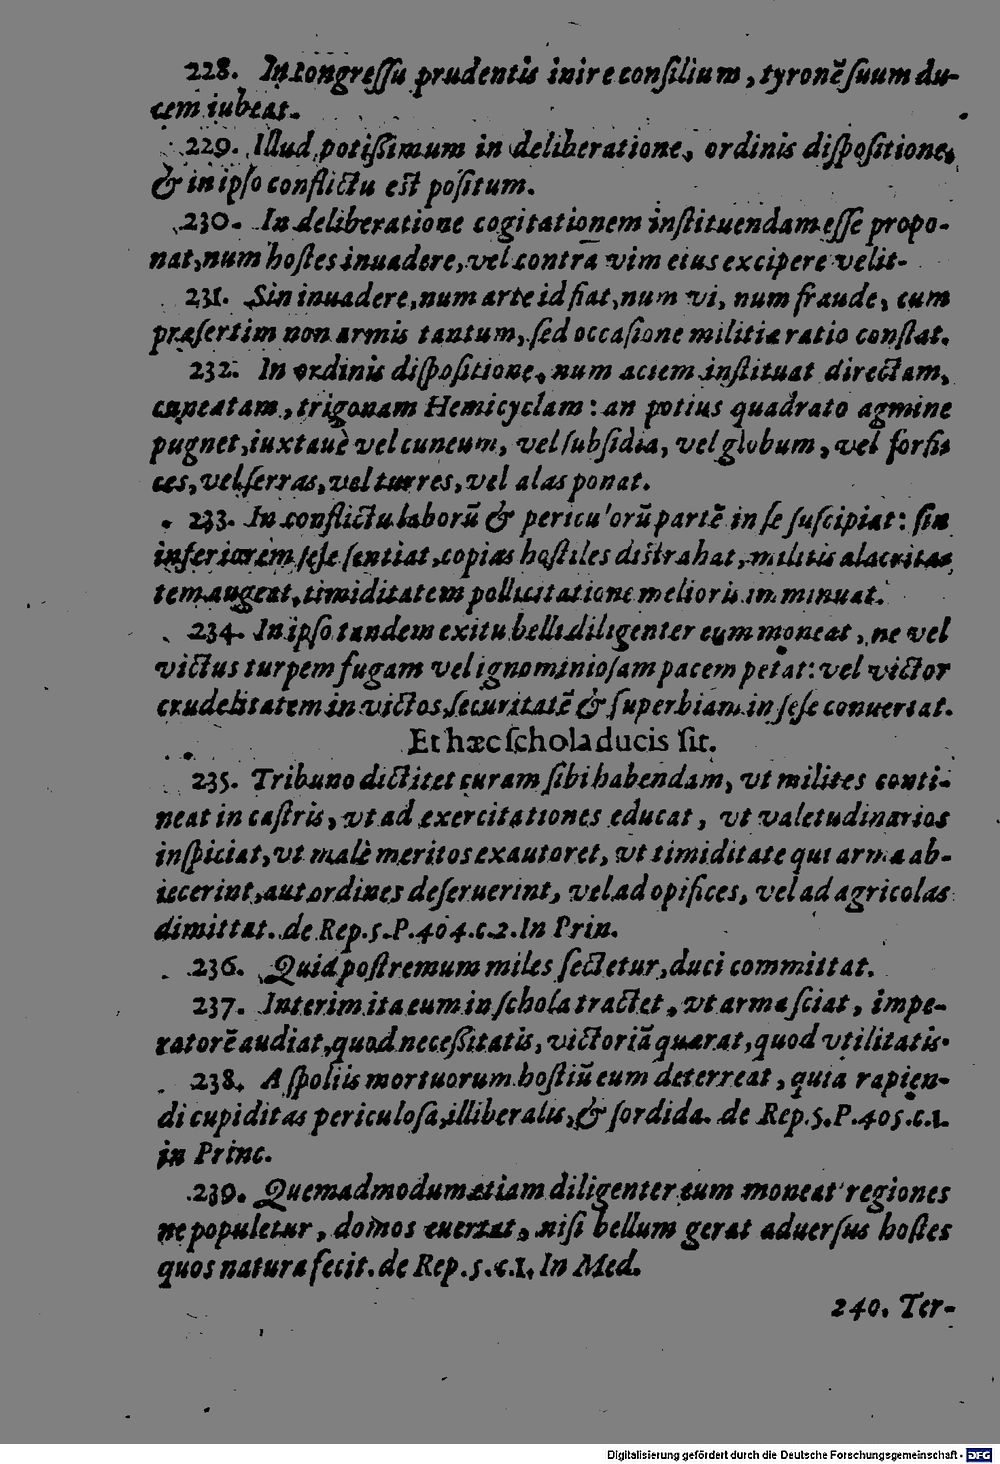 228. In congressu prudentis inire consilium, tyronẽ suum du-
cem iubeat.
229. Illud potißimum in deliberatione, ordinis dispositione,
& in ipso conflictu est positum.
230. In deliberatione cogitationem instituendam esse propo-
nat, num hostes inuadere, vel contra vim eius excipere velit.
231. Sin inuadere, num arte id fiat, num vi, num fraude, cum
præsertim non armis tantum, sed occasione militiæ ratio constat.
232. In ordinis dispositione, num aciem instituat directam,
cuneatam, trigonam Hemicyclam: an potius quadrato agmine
pugnet, iuxtauè vel cuneum, vel subsidia, vel globum, vel forfi
ces, vel serras, vel turres, vel alas ponat.
233. In conflictu laborũ & periculorũ partẽ in se suscipiat: sin
inferiorem sese sentiat, copias hostiles distrahat, militis alacrita
tem augeat, timiditatem pollicitatione melioris imminuat.
234. In ipso tandem exitu belli diligenter eum moneat, ne vel
victus turpem fugam vel ignominiosam pacem petat: vel victor
crudelitatem in victos, securitatẽ & superbiam in sese conuertat.
Et hæc schola ducis sit.
235. Tribuno dictitet curam sibi habendam, vt milites conti-
neat in castris, vt ad exercitationes educat, vt valetudinarios
inspiciat, vt malè meritos exautoret, vt timiditate qui arma ab-
iecerint, aut ordines deseruerint, vel ad opifices, vel ad agricolas
dimittat. de Rep. 5. P. 404. c. 2. In Prin.
236. Quid postremum miles sectetur, duci committat.
237. Interim ita eum in schola tractet, vt arma sciat, impe-
ratorẽ audiat, quod neceßitatis, victoriã quærat, quod vtilitatis.
238. A spoliis mortuorum hostiũ eum deterreat, quia rapien-
di cupiditas periculosa, illiberalis, & sordida. de Rep. 5. P. 405. c. 1.
in Princ.
239. Quemadmodum etiam diligenter eum moneat regiones
ne populetur, domos euertat, nisi bellum gerat aduersus hostes
quos natura fecit. de Rep. 5. c. 1. In Med.
240. Ter-
Digitalisierung gefördert durch die Deutsche Forschungsgemeinschaft - DFG